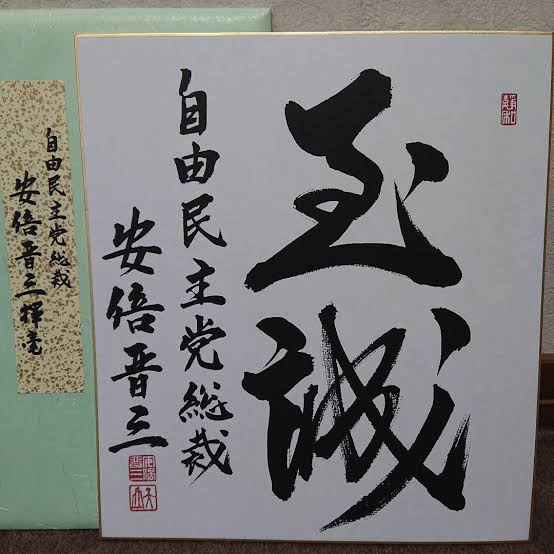 至誠
自由民主党総裁
安倍晋三
自由民主党総裁
安倍晋三揮毫